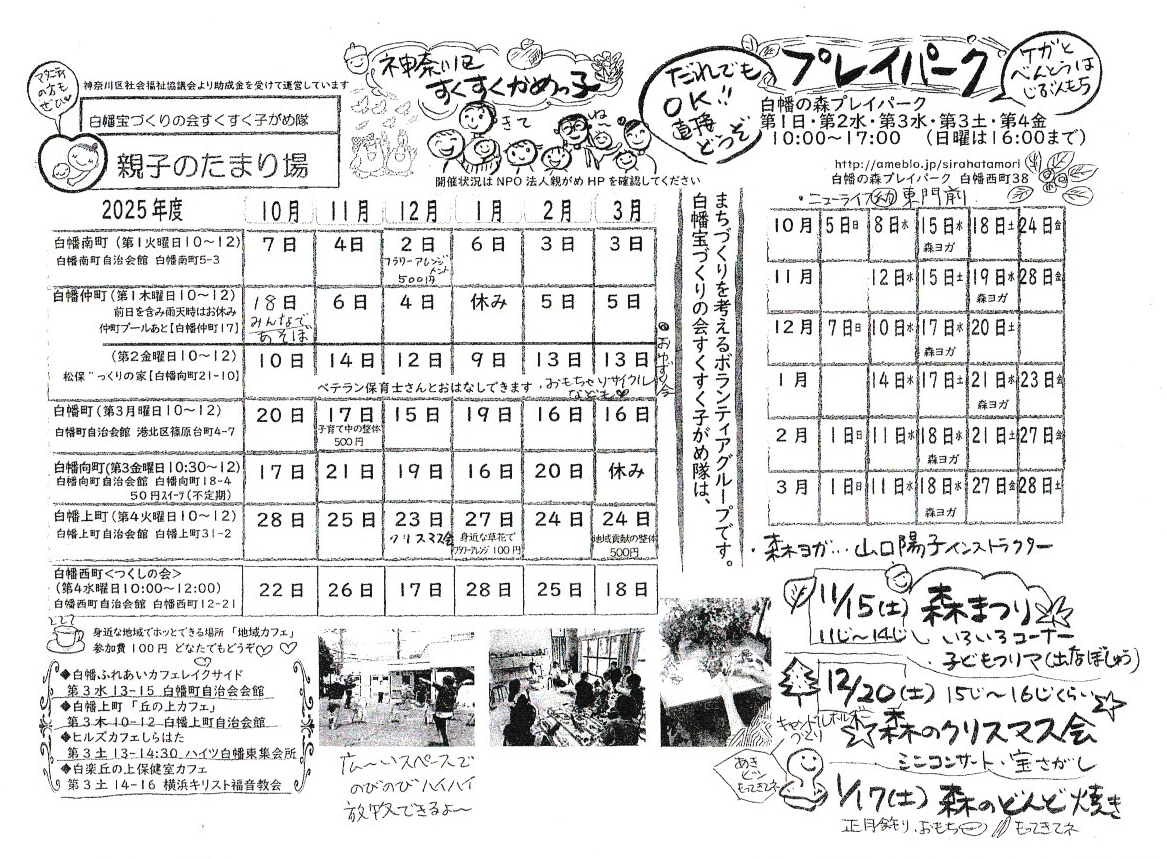 マタニティの方もぜひ
神奈川区社会福祉協議会より助成金を受けて運営しています
白幡宝づくりの会すくすく子がめ隊
親子のたまり場
神奈川区
すくすくかめっ子
きてね
開催状況はNPO法人親がめHPを確認してください
だれでも
OK!!
直接
どうぞ
プレイパーク
ケガと
べんとうは
じぶんもち
白幡の森プレイパーク
第1日・第2水・第3水・第3土・第4金
10:00〜17:00 (日曜は16:00まで)
http://ameblo.jp/sirahatamori
白幡の森プレイパーク 白幡西町38
・ニューライフ幼 東門前
2025年度 10月 11月 12月 1月 2月 3月
白幡南町(第1火曜日10〜12) 7日 4日 2日 6日 3日 3日
白幡南町自治会館 白幡南町5-3
フラワーアレンジメント
500円
白幡仲町(第1木曜日10〜12) 18日 6日 4日 休み 5日 5日
前日を含み雨天時はお休み
仲町プールあと【白幡仲町17】
みんなで
あそぼ
(第2金曜日10〜12) 10日 14日 12日 9日 13日 13日
松保〝っくりの家【白幡向町21-10】
ベテラン保育士さんとおはなしできます。おもちゃリサイクル
なども
おゆずり会
白幡町(第3月曜日10〜12) 20日 17日 15日 19日 16日 16日
白幡町自治会館 港北区篠原台町4-7
子育て中の整体
500円
白幡向町(第3金曜日10:30〜12) 17日 21日 19日 16日 20日 休み
白幡向町自治会館 白幡向町18-4
50円スイーツ(不定期)
白幡上町(第4火曜日10〜12) 28日 25日 23日 27日 24日 24日
白幡上町自治会館 白幡上町31-2
クリスマス会
身近な草花で
フラワーアレンジ100円
地域貢献の整体
500円
白幡西町<つくしの会>
(第4水曜日10:00〜12:00) 22日 26日 17日 28日 25日 18日
白幡西町自治会館 白幡西町12-21
まちづくりを考えるボランティアグループです。
白幡宝づくりの会すくすく子がめ隊は、
10月 5日日 8日水 15日水 18日土 24日金
森ヨガ
11月 12日水 15日土 19日水 28日金
森ヨガ
12月 7日日 10日水 17日水 20日土
森ヨガ
1月 14日水 17日土 21日水 23日金
森ヨガ
2月 1日日 11日水 18日水 21日土 27日金
森ヨガ
3月 1日日 11日水 18日水 27日金 28日土
森ヨガ
・森ヨガ…山口陽子インストラクター
身近な地域でホッとできる場所「地域カフェ」
参加費100円 どなたでもどうぞ♡♡
◆白幡ふれあいカフェレイクサイド
第3水 13-15 白幡町自治会会館
◆白幡上町「丘の上カフェ」
第3木 10-12 白幡上町自治会館
◆ヒルズカフェしらはた
第3土 13-14:30 ハイツ白幡東集会所
◆白楽丘の上保健室カフェ
第3土 14-16 横浜キリスト福音教会
広〜いスペースで
のびのびハイハイ
放牧できるよ〜
11/15(土) 森まつり
11じ〜14じ いろいろコーナー
・子どもフリマ(出店ぼしゅう)
12/20(土) 15じ〜16じくらい
森のクリスマス会
ミニコンサート・宝さがし
キャンドルホルダー
つくり
1/17(土) 森のどんど焼き
あき
ビン
もってきてネ
正月飾り、おもち もってきてネ